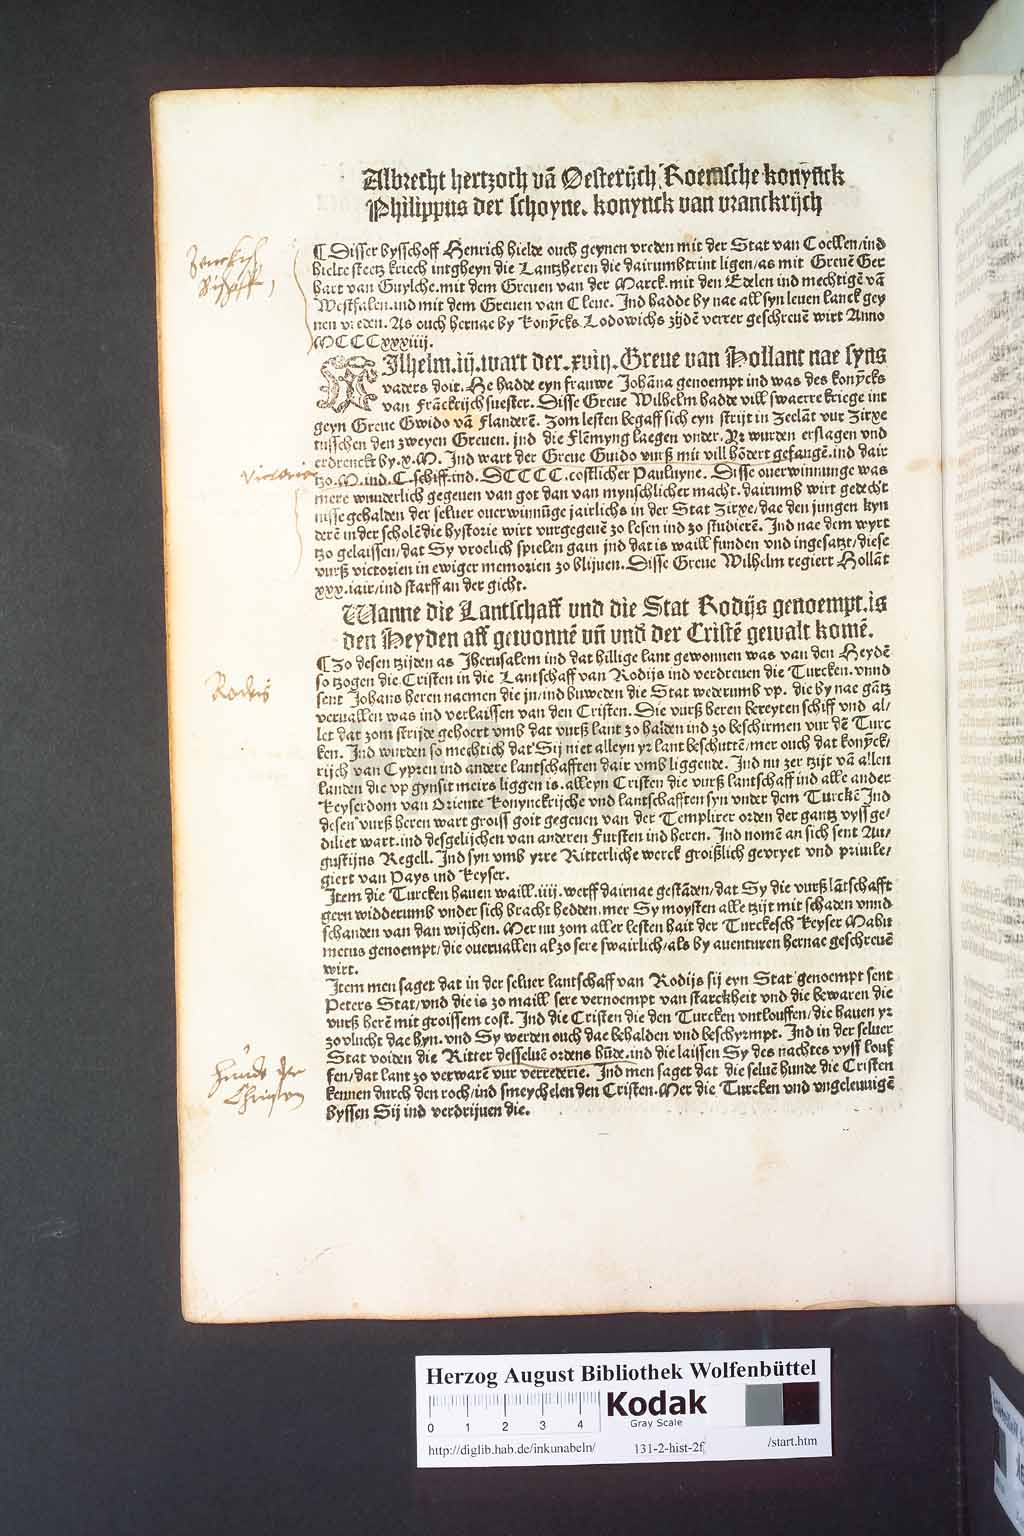 Albrecht hertzoch vā Oesterijch Roemsche konȳnck
Philippus der schoyne. konynck van vranckrijch
¶ Disser bysschoff Henrich hielde ouch geynen vreden mit der Stat van Coellen/ind
hielte steetz kriech intgheyn die Lantzheren die dairumbtrint ligen/as mit Greuē Ger
hart van Guylche.mit dem Greuen van der Marck.mit den Edelen ind mechtigē vā
Westfalen.ind mit dem Greuen van Cleue. Ind hadde by nae all syn leuen lanck gey
nen vreden. As ouch hernae by konȳcks Lodowichs zijdē verrer geschreuē wirt Anno
MCCCxxxiiij.
WIlhelm.iij.wart der.xviij. Greue van Hollant nae syns
vaders doit. He hadde eyn frauwe Johāna genoempt ind was des konȳcks
van Frāckrijch suester. Disse Greue Wilhelm hadde vill swaerre kriege int
geyn Greue Gwido vā Flanderē. Zom lesten begaff sich eyn strijt in Zeelāt vur Zirxe
tusschen den zweyen Greuen. jnd die Flēmyng laegen vnder. Yr wurden erslagen vnd
erdrenckt by.x.M. Ind wart der Greue Guido vurß mit vill hōdert gefangē.ind dair
tzo.M.ind.C.schiff.ind. SCCCC.costlicher Pauluyne. Disse ouerwinnunge was
mere wunderlich gegeuen van got dan van mynschlicher macht. dairumb wirt gedecht
nisse gehalden der seluer ouerwinnūge jairlichs in der Stat Zirxe/dae den jungen kyn
derē in der scholē die hystorie wirt vurgegeuē zo lesen ind zo studierē. Ind nae dem wyrt
tzo gelaissen/dat Sy vroelich spielen gain jnd dat is waill funden vnd ingesatzt/diese
vurß victorien in ewiger memorien zo blijuen. Disse Greue Wilhelm regiert Hollāt
xxx.iair/ind starff an der gicht.
Wanne die Lantschaff vnd die Stat Rodijs genoempt.is
den Heyden aff gewonnē vn̄ vnd der Cristē gewalt komē.
¶ Zo desen tzijden as Jherusalem ind dat hillige lant gewonnen was van den Heydē
so tzogen die Cristen in die Lantschaff van Rodijs ind verdreuen die Turcken. vnnd
sent Johans heren naemen die jn/ind buweden die Stat wederumb vp. die by nae gātz
veruallen was ind verlaissen van den Cristen. Die vurß heren bereyten schiff vnd al/
let dat zom strijde gehoert vmb dat vurß lant zo halden ind zo beschirmen vur dē Turc
ken. Ind wurden so mechtich dat Sij niet alleyn yr lant beschuttē/mer ouch dat konȳck/
rijch van Cypren ind andere lantschafften dair vmb liggende. Ind nu zer tzijt vā allen
landen die vp gynsit meirs liggen is.alleyn Cristen die vurß lantschaff ind alle ander
Keyserdom van Oriente Konynckrijche vnd lantschafften syn vnder dem Turckē Ind
desen vurß heren wart groiss goit gegeuen van der Templirer orden der gantz vyss ge/
diliet wart.ind desgelijchen van anderen Fursten ind heren. Ind nomē an sich sent Au/
gustijns Regell. Ind syn vmb yrre Ritterliche werck groißlich gevryet vnd priuile/
giert van Pays ind Keyser.
Item die Turcken hauen waill.iiij.werff dairnae gestāden/dat Sy die vurß lātschafft
gern widderumb vnder sich bracht hedden.mer Sy moysten alle tzijt mit schaden vnnd
schanden van dan wijchen. Mer nu zom aller lesten hait der Turckesch Keyser Mahu
metus genoempt/die oueruallen al zo sere swairlich/als by auenturen hernae geschreuē
wirt.
Item men saget dat in der seluer lantschaff van Rodijs sij eyn Stat genoempt sent
Peters Stat/vnd die is zo maill sere vernoempt van starckheit vnd die bewaren die
vurß herē mit groissem cost. Ind die Cristen die den Turcken vntlouffen/die hauen yr
zovlucht dae hyn.vnd Sy werden ouch dae behalden vnd beschyrmpt. Ind in der seluer
Stat voiden die Ritter desseluē ordens hūde.ind die laissen Sy des nachtes vyss louf
fen/dat lant zo verwarē vur verrederie. Ind men saget dat die seluē hunde die Cristen
kennen durch den roch/ind smeychelen den Cristen. Mer die Turcken vnd vngeleuuigē
byssen Sij ind verdrijuen die.
Victoria
Rodis
Hunde der
Christen
Herzog August Bibliothek Wolfenbüttel
Kodak
Gray Scale
0 1 2 3 4
http://diglib.hab.de/inkunabeln/ 131-2-hist-2f /start.htm